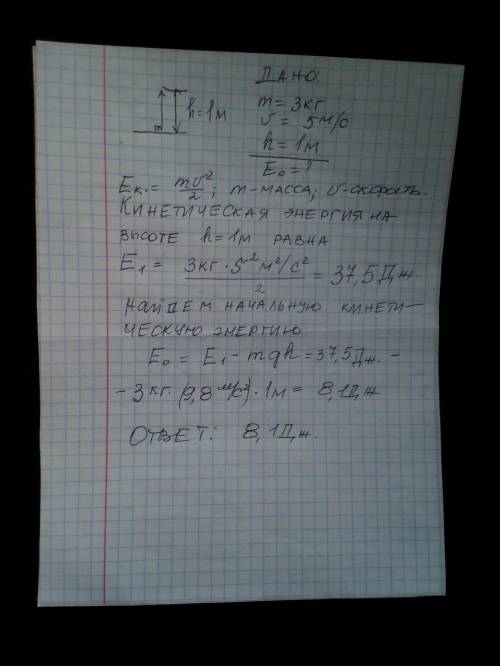 ДАНО:
h=1м
m=3кг
v= 5м/с
h=1м
E₀=?
Eк.= mv²/2; m-МАССА; v-скорость.
КИНЕТИЧЕСКАЯ ЭНЕРГИЯ НА
ВЫСОТЕ h=1м РАВНА
E₁= 3кг·5²м²/с²/2 = 37,5Дж.
НАЙДЕМ НАЧАЛЬНУЮ КИНЕТИ-
ЧЕСКУЮ ЭНЕРГИЮ
E₀ = E₁-mgh=37,5Дж. -
- 3кг·(9,8м/с²)·1м= 8,1Дж
ОТВЕТ: 8,1Дж.